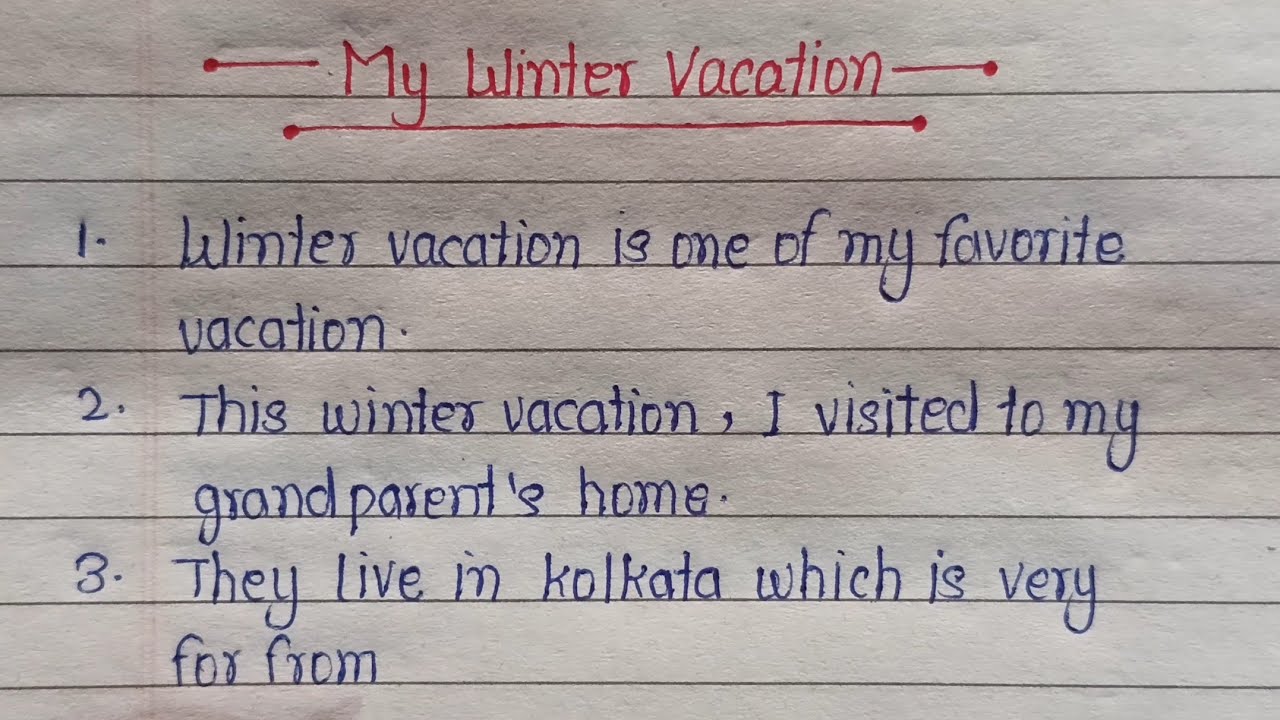 My Winter Vacation
1. Winter vacation is one of my favorite
vacation.
2. This winter vacation, I visited to my
grandparent's home.
3. They live in kolkata which is very
for from